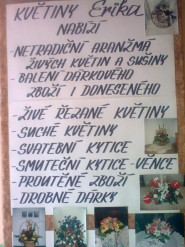 KVĚTINY Erika
NABÍZÍ
- NETRADIČNÍ ARANŽMÁ
ŽIVÝCH KVĚTIN A SUŠINY
- BALENÍ DÁRKOVÉHO
ZBOŽÍ I DONESENÉHO
- ŽIVÉ ŘEZANÉ KVĚTINY
- SUCHÉ KVĚTINY
- SVATEBNÍ KYTICE
- SMUTEČNÍ KYTICE - VĚNCE
- PROUTĚNÉ ZBOŽÍ
- DROBNÉ DÁRKY